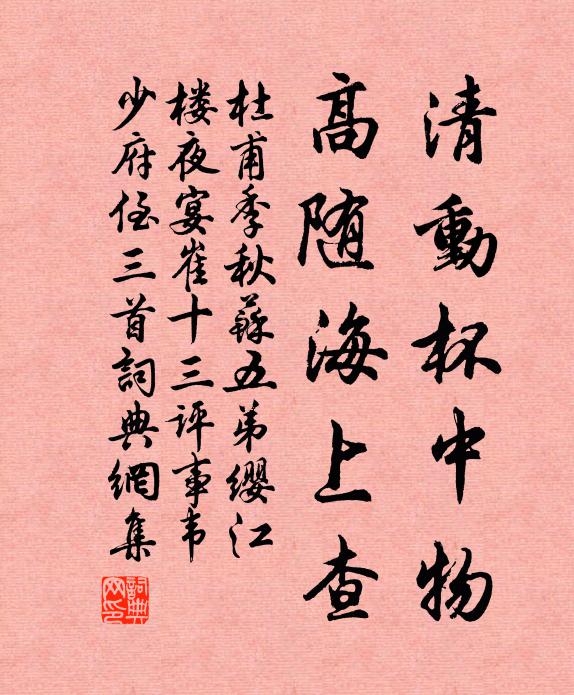 清動杯中物
高随海上查
杜甫季秋蘇五弟纓江
楼夜宴崔十三评事韦
少府侄三首詞典網集